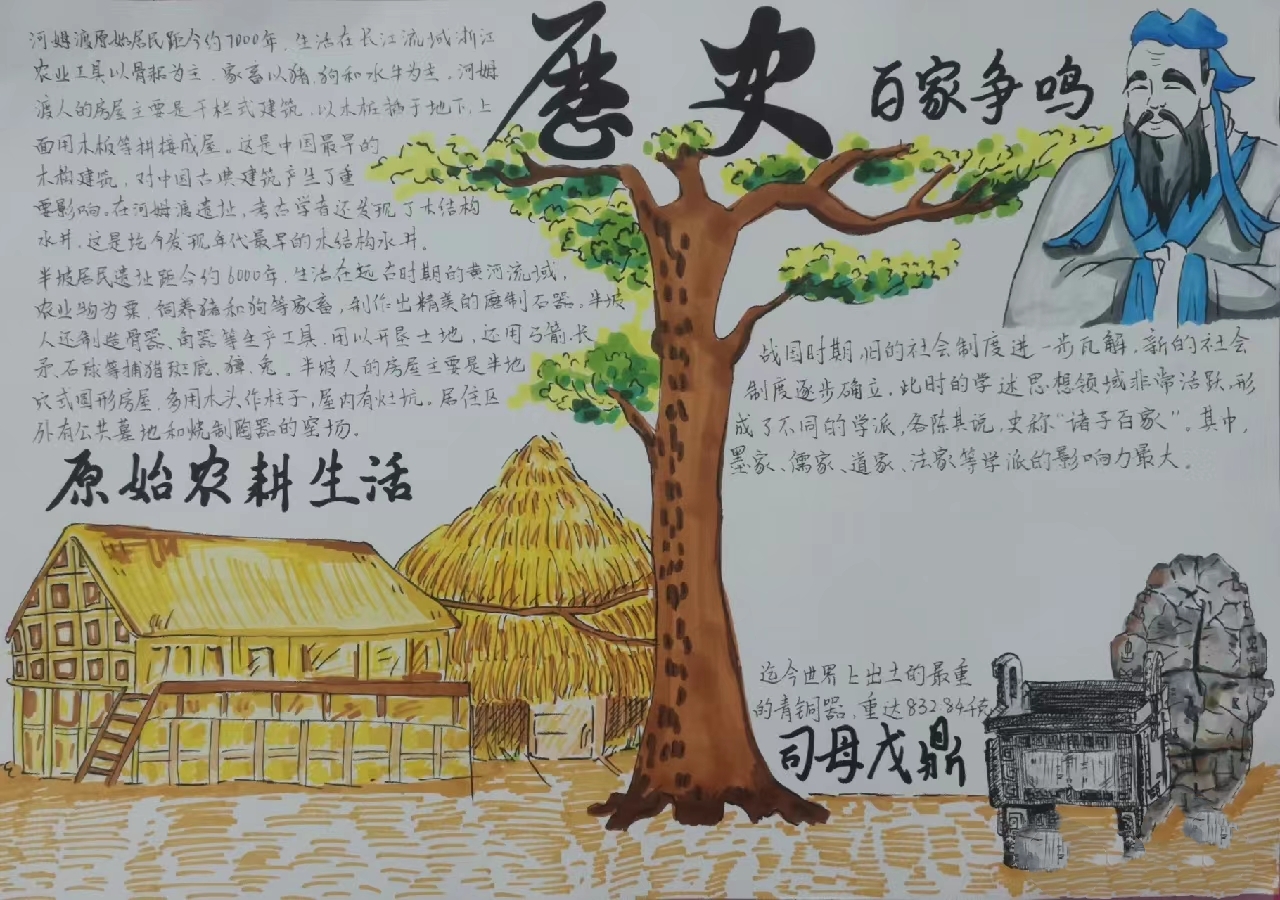 歷史
河姆渡原始居民距今约7000年，生活在长江流域浙江
农业工具以骨耜为主，家畜以猪，狗和水牛为主，河姆
渡人的房屋主要是干栏式建筑，以木桩插于地下，上
面用木板等拼接成屋。这是中国最早的
木构建筑，对中国古典建筑产生了重
要影响。在河姆渡遗址，考古学者还发现了木结构
水井，这是迄今发现年代最早的木结构水井。
半坡居民遗址距今约6000年，生活在远古时期的黄河流域，
农业物为粟，饲养猪和狗等家畜，制作出精美的磨制石器。半坡
人还制造骨器、角器等生产工具，用以开垦土地，还用弓箭、长
矛、石球等捕猎斑鹿、獐、兔。半坡人的房屋主要是半地
穴式圆形房屋，多用木头作柱子，屋内有灶坑。居住区
外有公共墓地和烧制陶器的窑场。
原始农耕生活
百家争鸣
战国时期，旧的社会制度进一步瓦解，新的社会
制度逐步确立，此时的学述思想领域非常活跃，形
成了不同的学派，各陈其说，史称“诸子百家”。其中，
墨家、儒家、道家、法家等学派的影响力最大。
迄今世界上出土的最重
的青铜器，重达832.84千
司母戊鼎